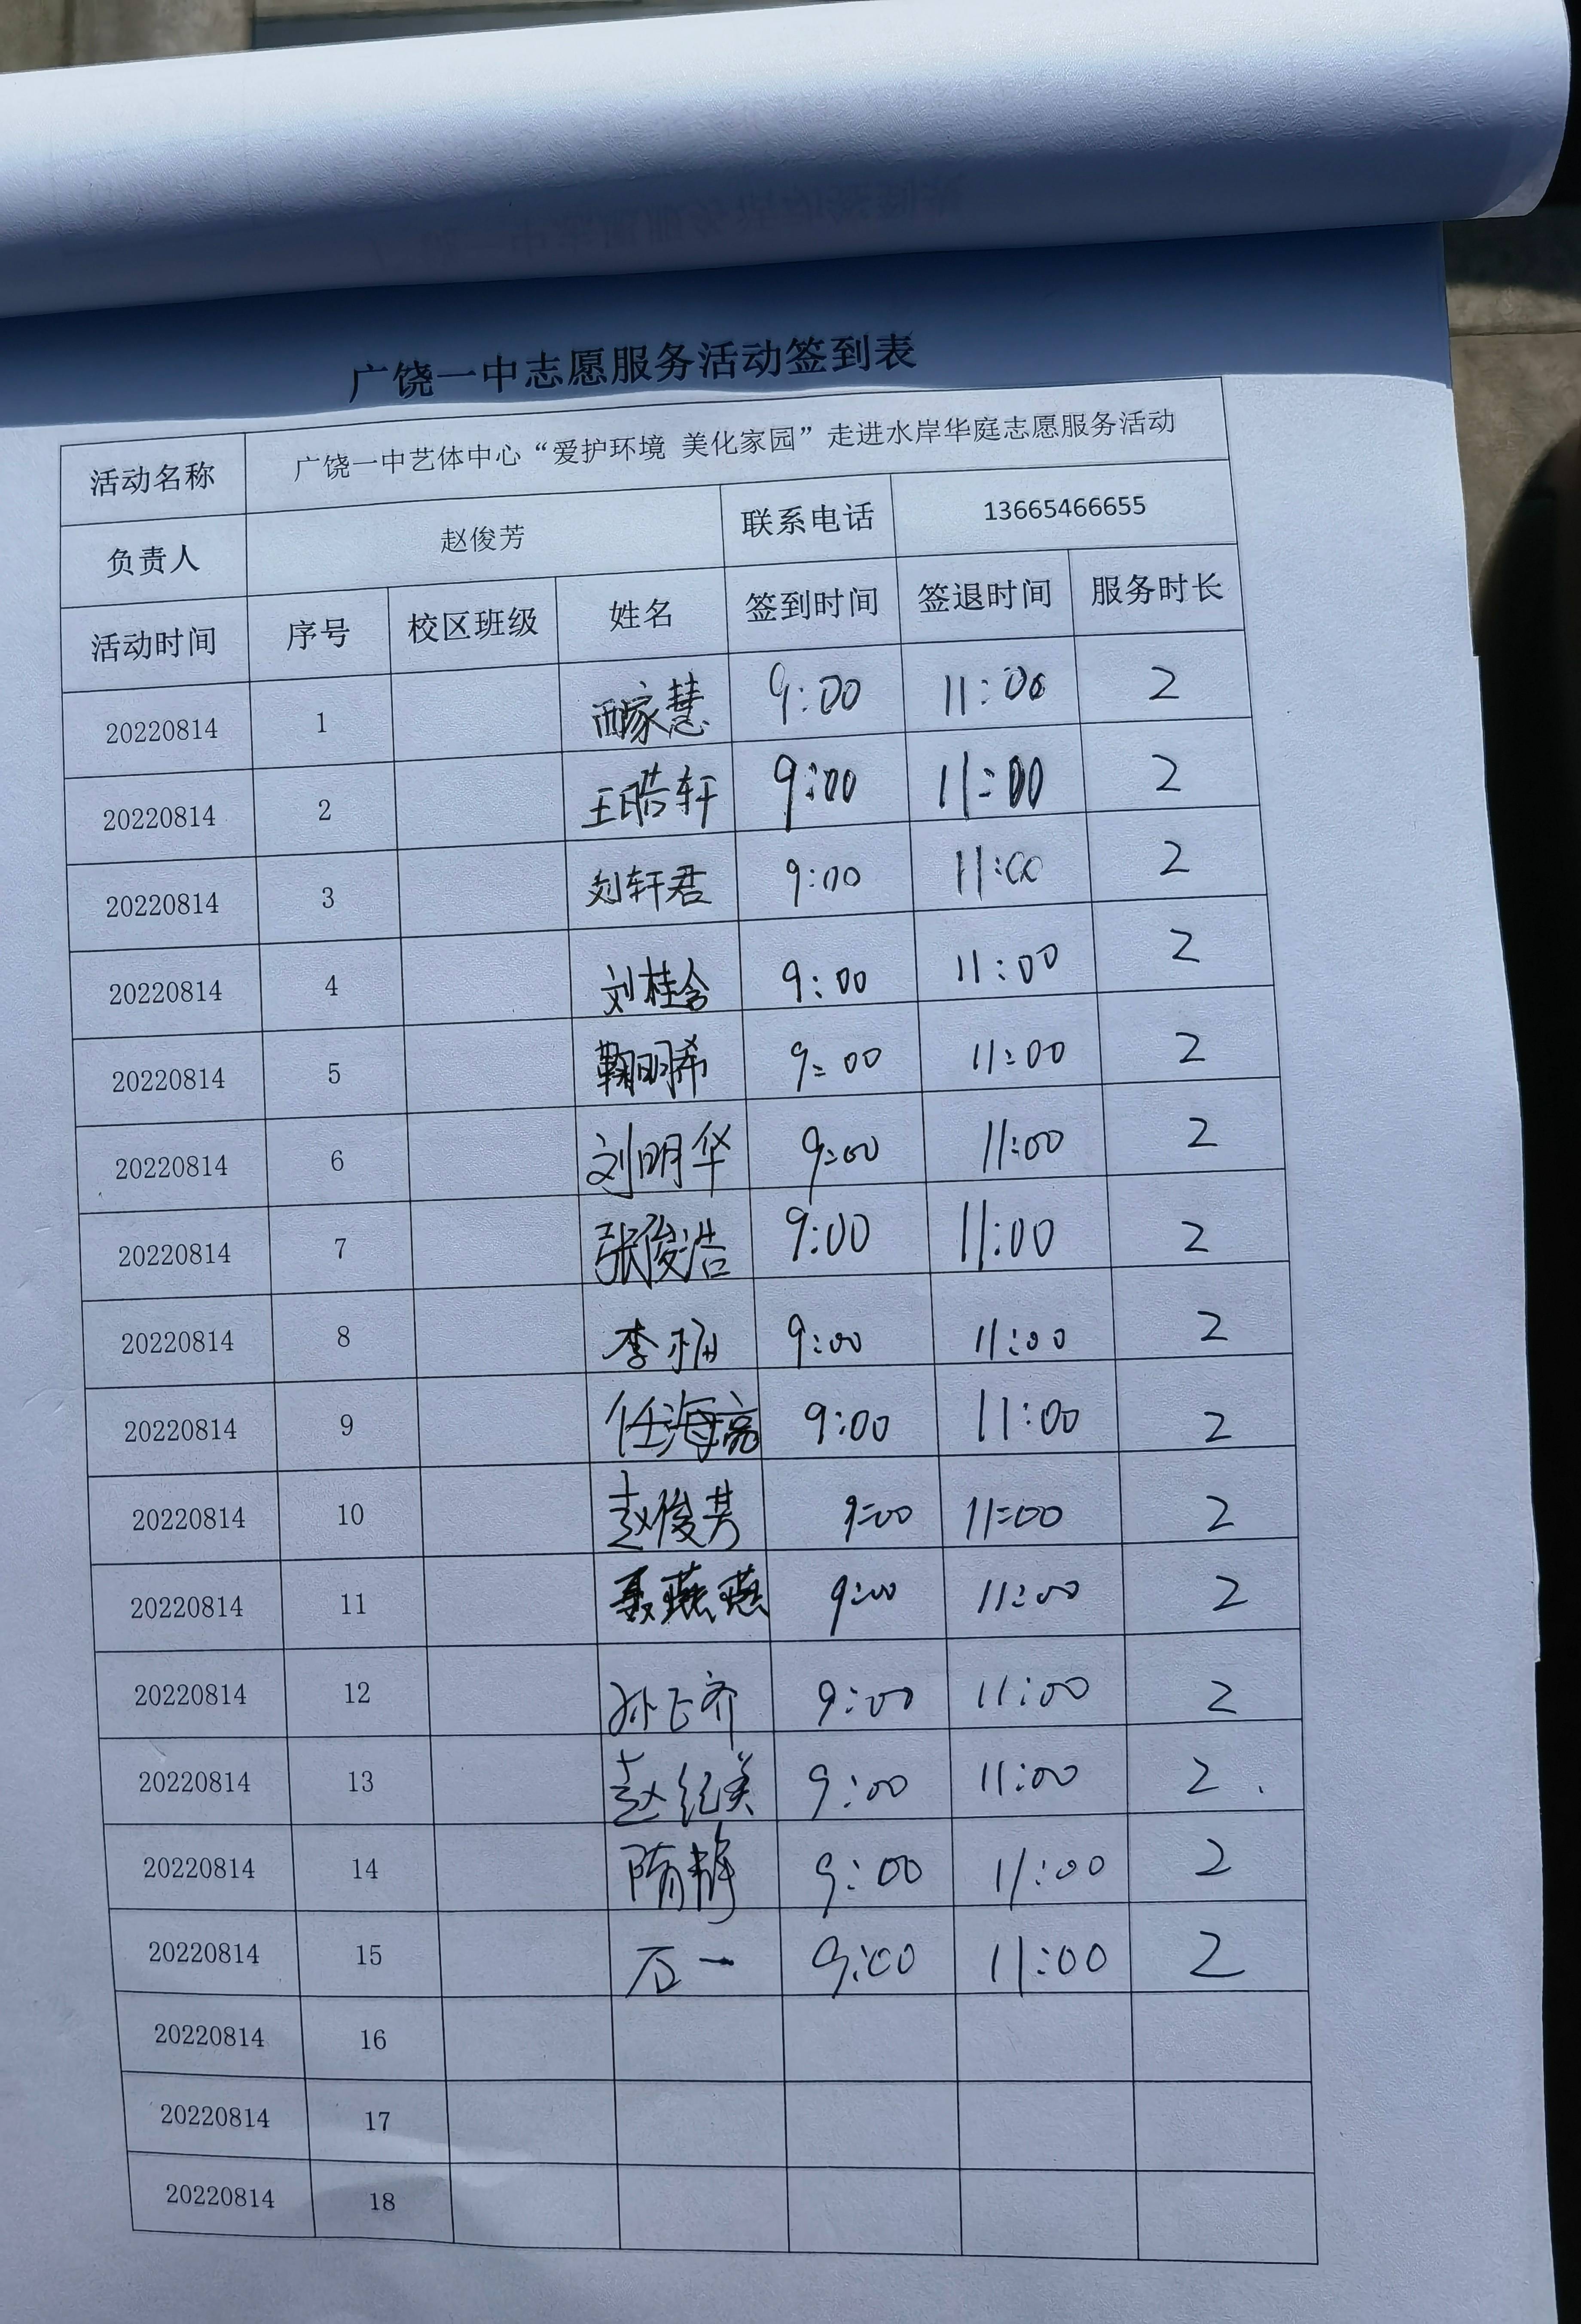 广饶一中志愿服务活动签到表
活动名称 广饶一中艺体中心“爱护环境 美化家园”走进水岸华庭志愿服务活动
负责人 赵俊芳 联系电话 13665466655
活动时间 序号 校区班级 姓名 签到时间 签退时间 服务时长
20220814 1 家慧 9:00 11:00 2
20220814 2 王晧轩 9:00 11:00 2
20220814 3 刘轩君 9:00 11:00 2
20220814 4 刘桂含 9:00 11:00 2
20220814 5 鞠明希 9:00 11:00 2
20220814 6 刘明华 9:00 11:00 2
20220814 7 张俊浩 9:00 11:00 2
20220814 8 李 9:00 11:00 2
20220814 9 任海亮 9:00 11:00 2
20220814 10 赵俊芳 9:00 11:00 2
20220814 11 聂燕燕 9:00 11:00 2
20220814 12 孙飞齐 9:00 11:00 2
20220814 13 赵纪美 9:00 11:00 2
20220814 14 隋静 9:00 11:00 2
20220814 15 石一 9:00 11:00 2
20220814 16
20220814 17
20220814 18